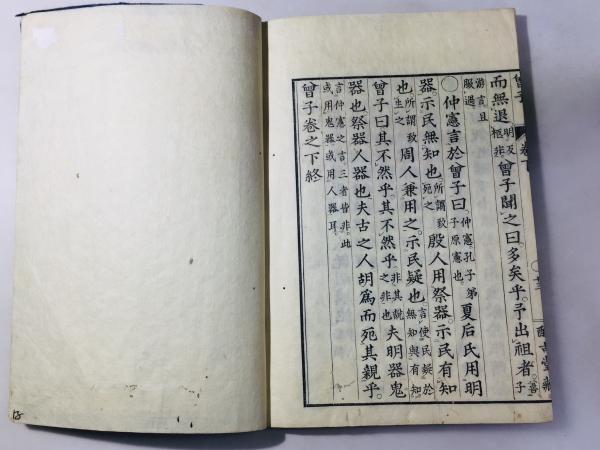 曾子 卷下
而無退明及柩非曾子聞之曰多矣乎予出祖者善子
游言且服過
○仲憲言於曾子曰仲憲孔子弟子原憲也夏后氏用明
器示民無知也所謂致死之殷人用祭器示民有知
也所謂致生之周人兼用之示民疑也言使民疑於無知與有知
曾子曰其不然乎其不然乎非其說之非也夫明器鬼
器也祭器人器也夫古之人胡爲而死其親乎
言仲憲之言三者皆非此或用鬼器或用人器耳
曾子卷之下終